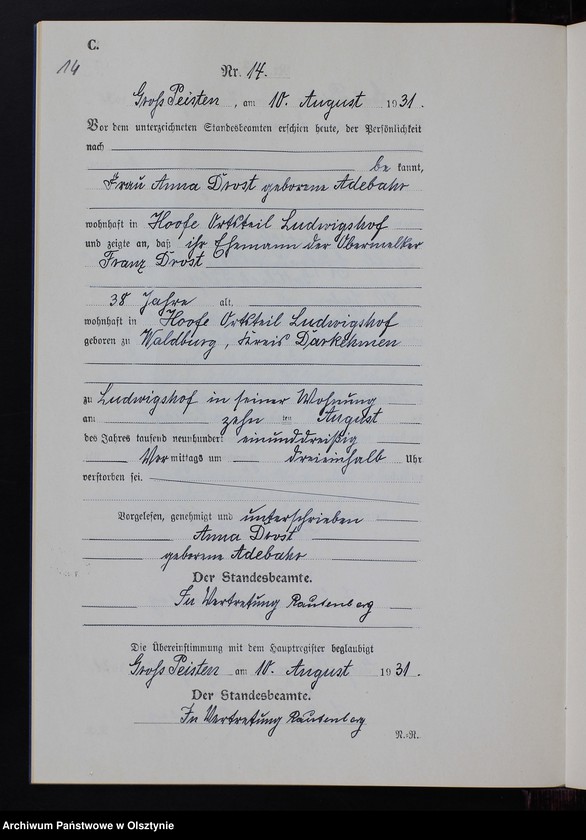 C.
14
Nr. 14.
Gross Peisten, am 10. August 1931.
Vor dem unterzeichneten Standesbeamten erschien heute, der Persönlichkeit
nach
be kannt,
Frau Anna Drost geborene Adebahr
wohnhaft in Hoofe Ortsteil Ludwigshof
und zeigte an, daß ihr Ehemann der Obermelker
Franz Drost
38 Jahre alt,
wohnhaft in Hoofe Ortsteil Ludwigshof
geboren zu Waldburg, Kreis Darkehmen
zu Ludwigshof in seiner Wohnung
am zehn ten August
des Jahres tausend neunhundert einunddreißig
Vor mittags um dreieinhalb Uhr
verstorben sei.
Vorgelesen, genehmigt und unterschrieben
Anna Drost
geborene Adebahr
Der Standesbeamte.
In Vertretung Rautenberg
Die Übereinstimmung mit dem Hauptregister beglaubigt
Gross Peisten am 10. August 1931.
Der Standesbeamte.
In Vertretung Rautenberg
N.-R.
Archiwum Państwowe w Olsztynie